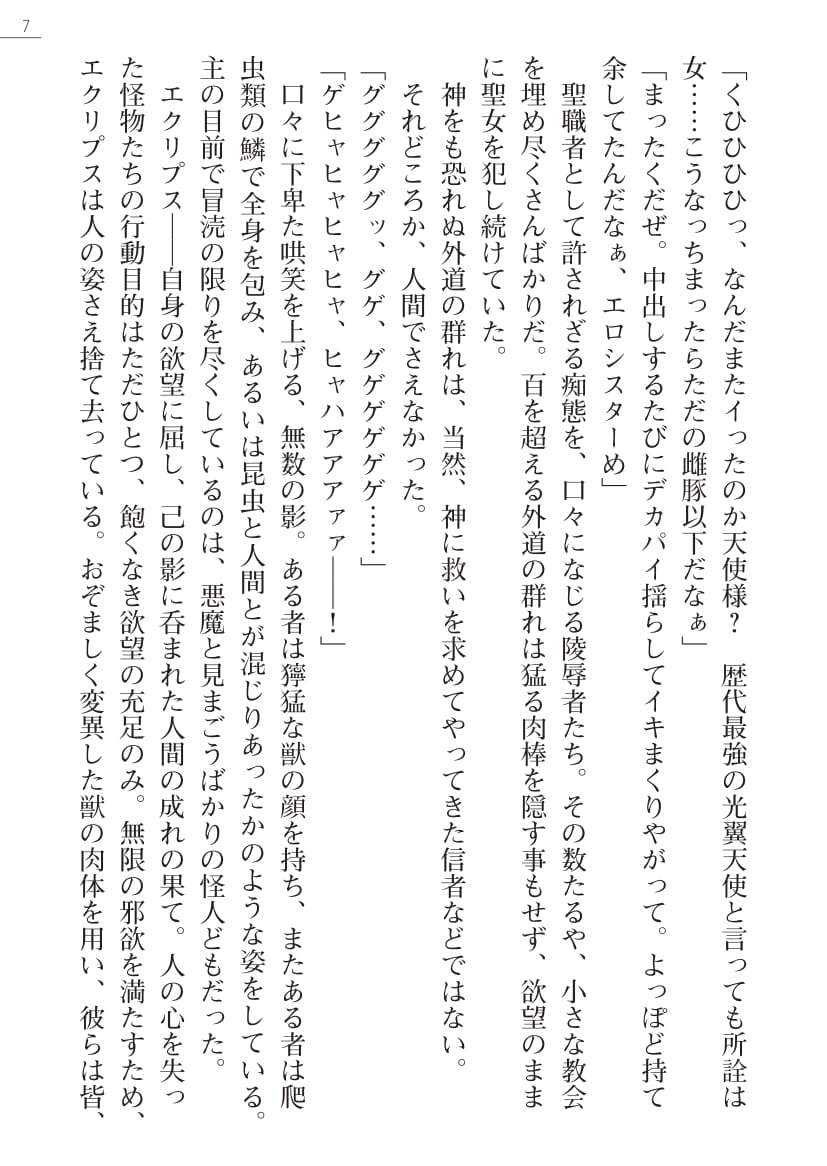 7
「くひひひひっ、なんだまたイったのか天使様？　歴代最強の光翼天使と言っても所詮は
女……こうなっちまったらただの雌豚以下だなぁ」
「まったくだぜ。中出しするたびにデカパイ揺らしてイキまくりやがって。よっぽど持て
余してたんだなぁ、エロシスターめ」
　聖職者として許されざる痴態を、口々になじる陵辱者たち。その数たるや、小さな教会
を埋め尽くさんばかりだ。百を超える外道の群れは猛る肉棒を隠す事もせず、欲望のまま
に聖女を犯し続けていた。
　神をも恐れぬ外道の群れは、当然、神に救いを求めてやってきた信者などではない。
　それどころか、人間でさえなかった。
「グググググッ、グゲ、グゲゲゲゲゲ……」
「ゲヒャヒャヒャヒャ、ヒャハアアアァァ――！」
　口々に下卑た哄笑を上げる、無数の影。ある者は獰猛な獣の顔を持ち、またある者は爬
虫類の鱗で全身を包み、あるいは昆虫と人間とが混じりあったかのような姿をしている。
主の目前で冒涜の限りを尽くしているのは、悪魔と見まごうばかりの怪人どもだった。
　エクリプス――自身の欲望に屈し、己の影に呑まれた人間の成れの果て。人の心を失っ
た怪物たちの行動目的はただひとつ、飽くなき欲望の充足のみ。無限の邪欲を満たすため、
エクリプスは人の姿さえ捨て去っている。おぞましく変異した獣の肉体を用い、彼らは皆、